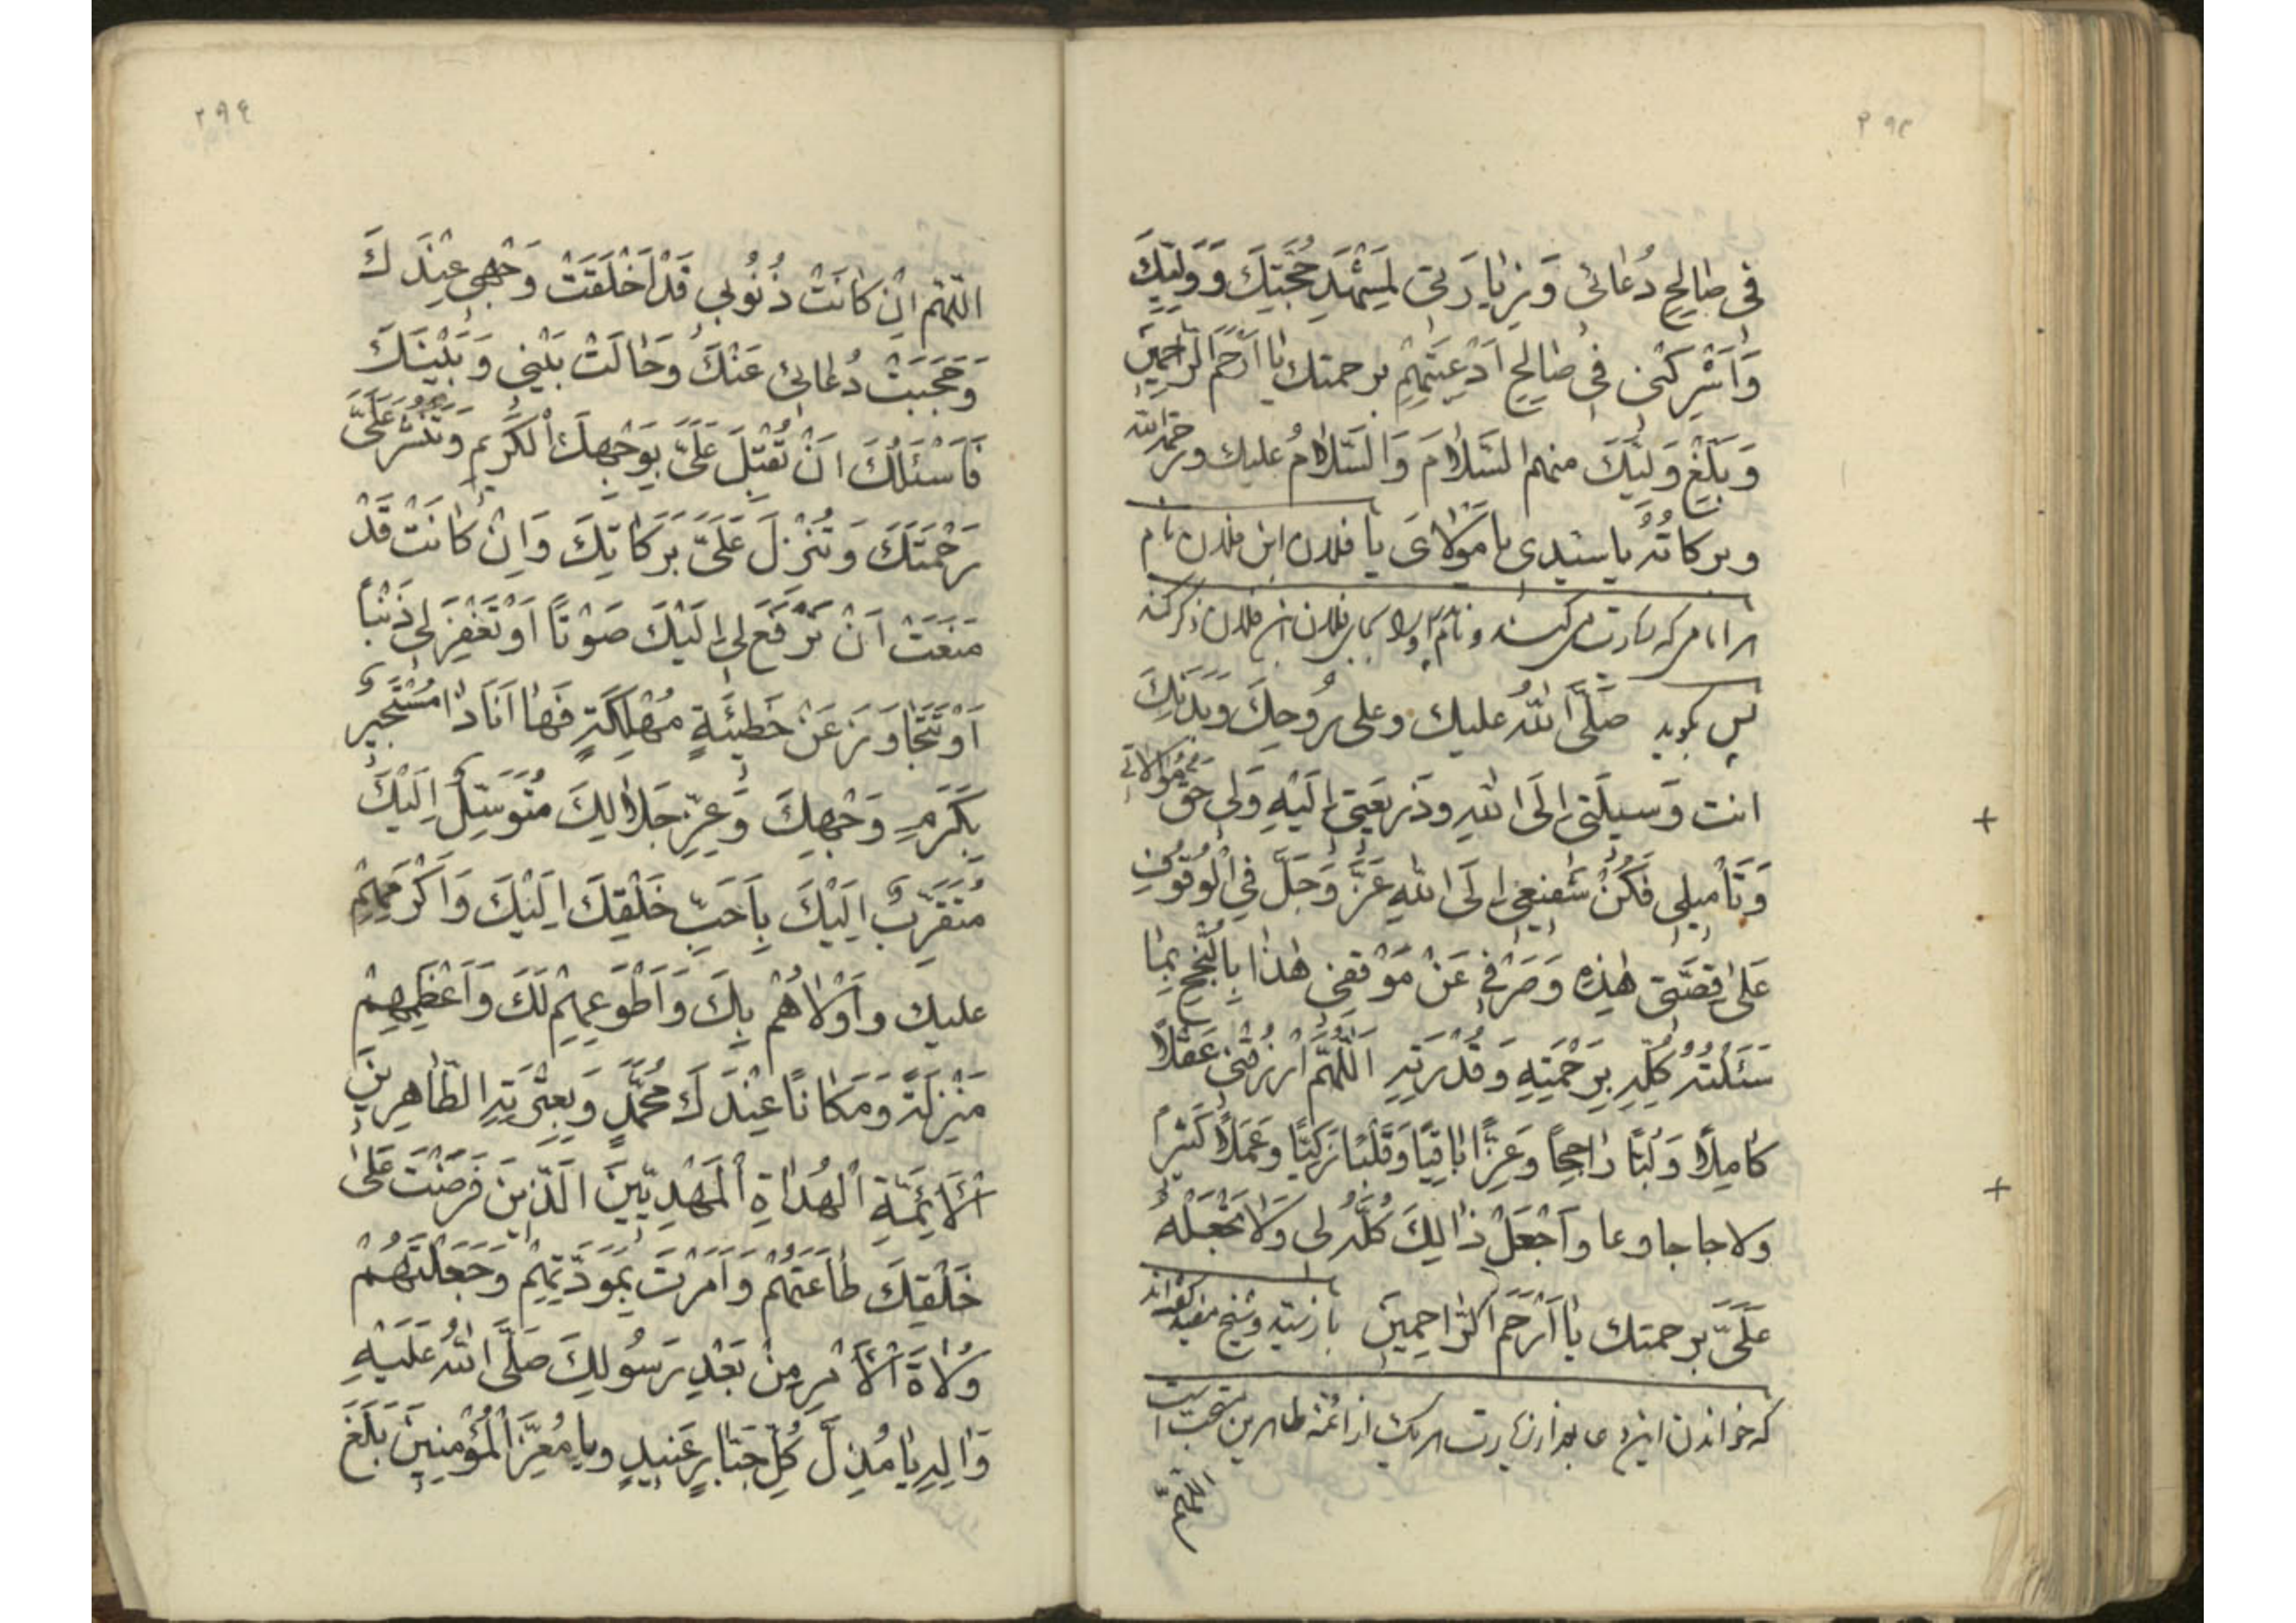 ۲۹۳
فی صٰالِحِ دُعٰائی وَ زِیٰارَتی لِمَشْهَدِ حُجَّتِكَ وَ وَلِیِّكَ
وَ اَشْرِكْنی فی صٰالِحِ اَدْعِیَتِهِمْ برحمتك یٰا اَرْحَمَ الرّٰاحِمینَ
وَ بَلِّغْ وَلِیَّكَ منهم السَّلاٰمَ وَ السَّلاٰمُ علیك ورحمة الله
وبركاتُهُ یا سیّدی یا مَوْلاٰیَ یا فلان ابن فلان نام
امامی که زیارت میکند و نام او را بجای فلان ابن فلان ذکر کند
پس بگوید صَلَّی اللّٰهُ علیك وعلی رُوحِكَ وَ بَدَنِكَ
انت وَسیلَتی اِلَی اللّٰهِ وذَریعَتی اِلَیْهِ وَلی حَقُّ مُوٰالاٰتی
وَ تَأْمیلی فَكُنْ شَفیعی اِلَی اللّٰهِ عَزَّ وَجَلَّ فِی الْوُقُوفِ
عَلیٰ قِصَّتی هٰذِهِ وَ صَرْفی عَنْ مَوْقِفی هٰذٰا بِالنُّجْحِ بِمٰا
سَئَلْتُهُ كُلِّهِ بِرَحْمَتِهِ وَ قُدْرَتِهِ اَللّٰهُمَّ ارْزُقْنی عَقْلاً
كٰامِلاً وَ لُبّاً رٰاجِحاً وَ عِزّاً بٰاقِیاً وَ قَلْبًا زَكِیّاً وَ عَمَلاً كَثیراً
واجْعَلْ ذٰالِكَ كُلَّهُ لی وَلاٰ تَجْعَلْهُ
عَلَیَّ برحمتك یٰا اَرْحَمَ الرّٰاحِمینَ وشیخ مفید گفته‌اند
که خواندن این دعا بعد از زیارت هر یک از ائمّهٔ طاهرین مستحب است
اللّهمّ
۲۹۴
اللّٰهُمَّ اِنْ كٰانَتْ ذُنُوبی قَدْ اَخْلَقَتْ وَجْهی عِنْدَكَ
وَ حَجَبَتْ دُعٰائی عَنْكَ وَ حٰالَتْ بَیْنی وَ بَیْنَكَ
فَاَسْئَلُكَ اَنْ تُقْبِلَ عَلَیَّ بِوَجْهِكَ الْكَریمِ وَ تَنْشُرَ عَلَیَّ
رَحْمَتَكَ وَ تُنْزِلَ عَلَیَّ بَرَكٰاتِكَ وَ اِنْ كٰانَتْ قَدْ
مَنَعَتْ اَنْ تَرْفَعَ لی اِلَیْكَ صَوْتاً اَوْ تَغْفِرَ لی ذَنْباً
اَوْ تَتَجٰاوَزَ عَنْ خَطیئَةٍ مُهْلِكَةٍ فَهٰا اَنَا ذٰا مُسْتَجیرٌ
بِكَرَمِ وَجْهِكَ وَ عِزِّ جَلاٰلِكَ مُتَوَسِّلٌ اِلَیْكَ
مُتَقَرِّبٌ اِلَیْكَ بِاَحَبِّ خَلْقِكَ اِلَیْكَ وَ اَكْرَمِهِمْ
علیك و اَوْلاٰهُمْ بِكَ وَ اَطْوَعِهِمْ لَكَ وَ اَعْظَمِهِمْ
مَنْزِلَةً وَ مَكٰانًا عِنْدَكَ مُحَمَّدٍ وَ بِعِتْرَتِهِ الطّٰاهِرینَ
اَلْاَئِمَّةِ الْهُدٰاةِ الْمَهْدِیّینَ اَلَّذینَ فَرَضْتَ عَلیٰ
خَلْقِكَ طٰاعَتَهُمْ وَ اَمَرْتَ بِمَوَدَّتِهِمْ وَ جَعَلْتَهُمْ
وُلاٰةَ الْاَمْرِ مِنْ بَعْدِ رَسُولِكَ صَلَّی اللّٰهُ عَلَیْهِ
وَ اٰلِهِ یٰا مُذِلَّ كُلِّ جَبّٰارٍ عَنیدٍ و یا مُعِزَّ الْمُؤْمِنینَ بَلَغَ